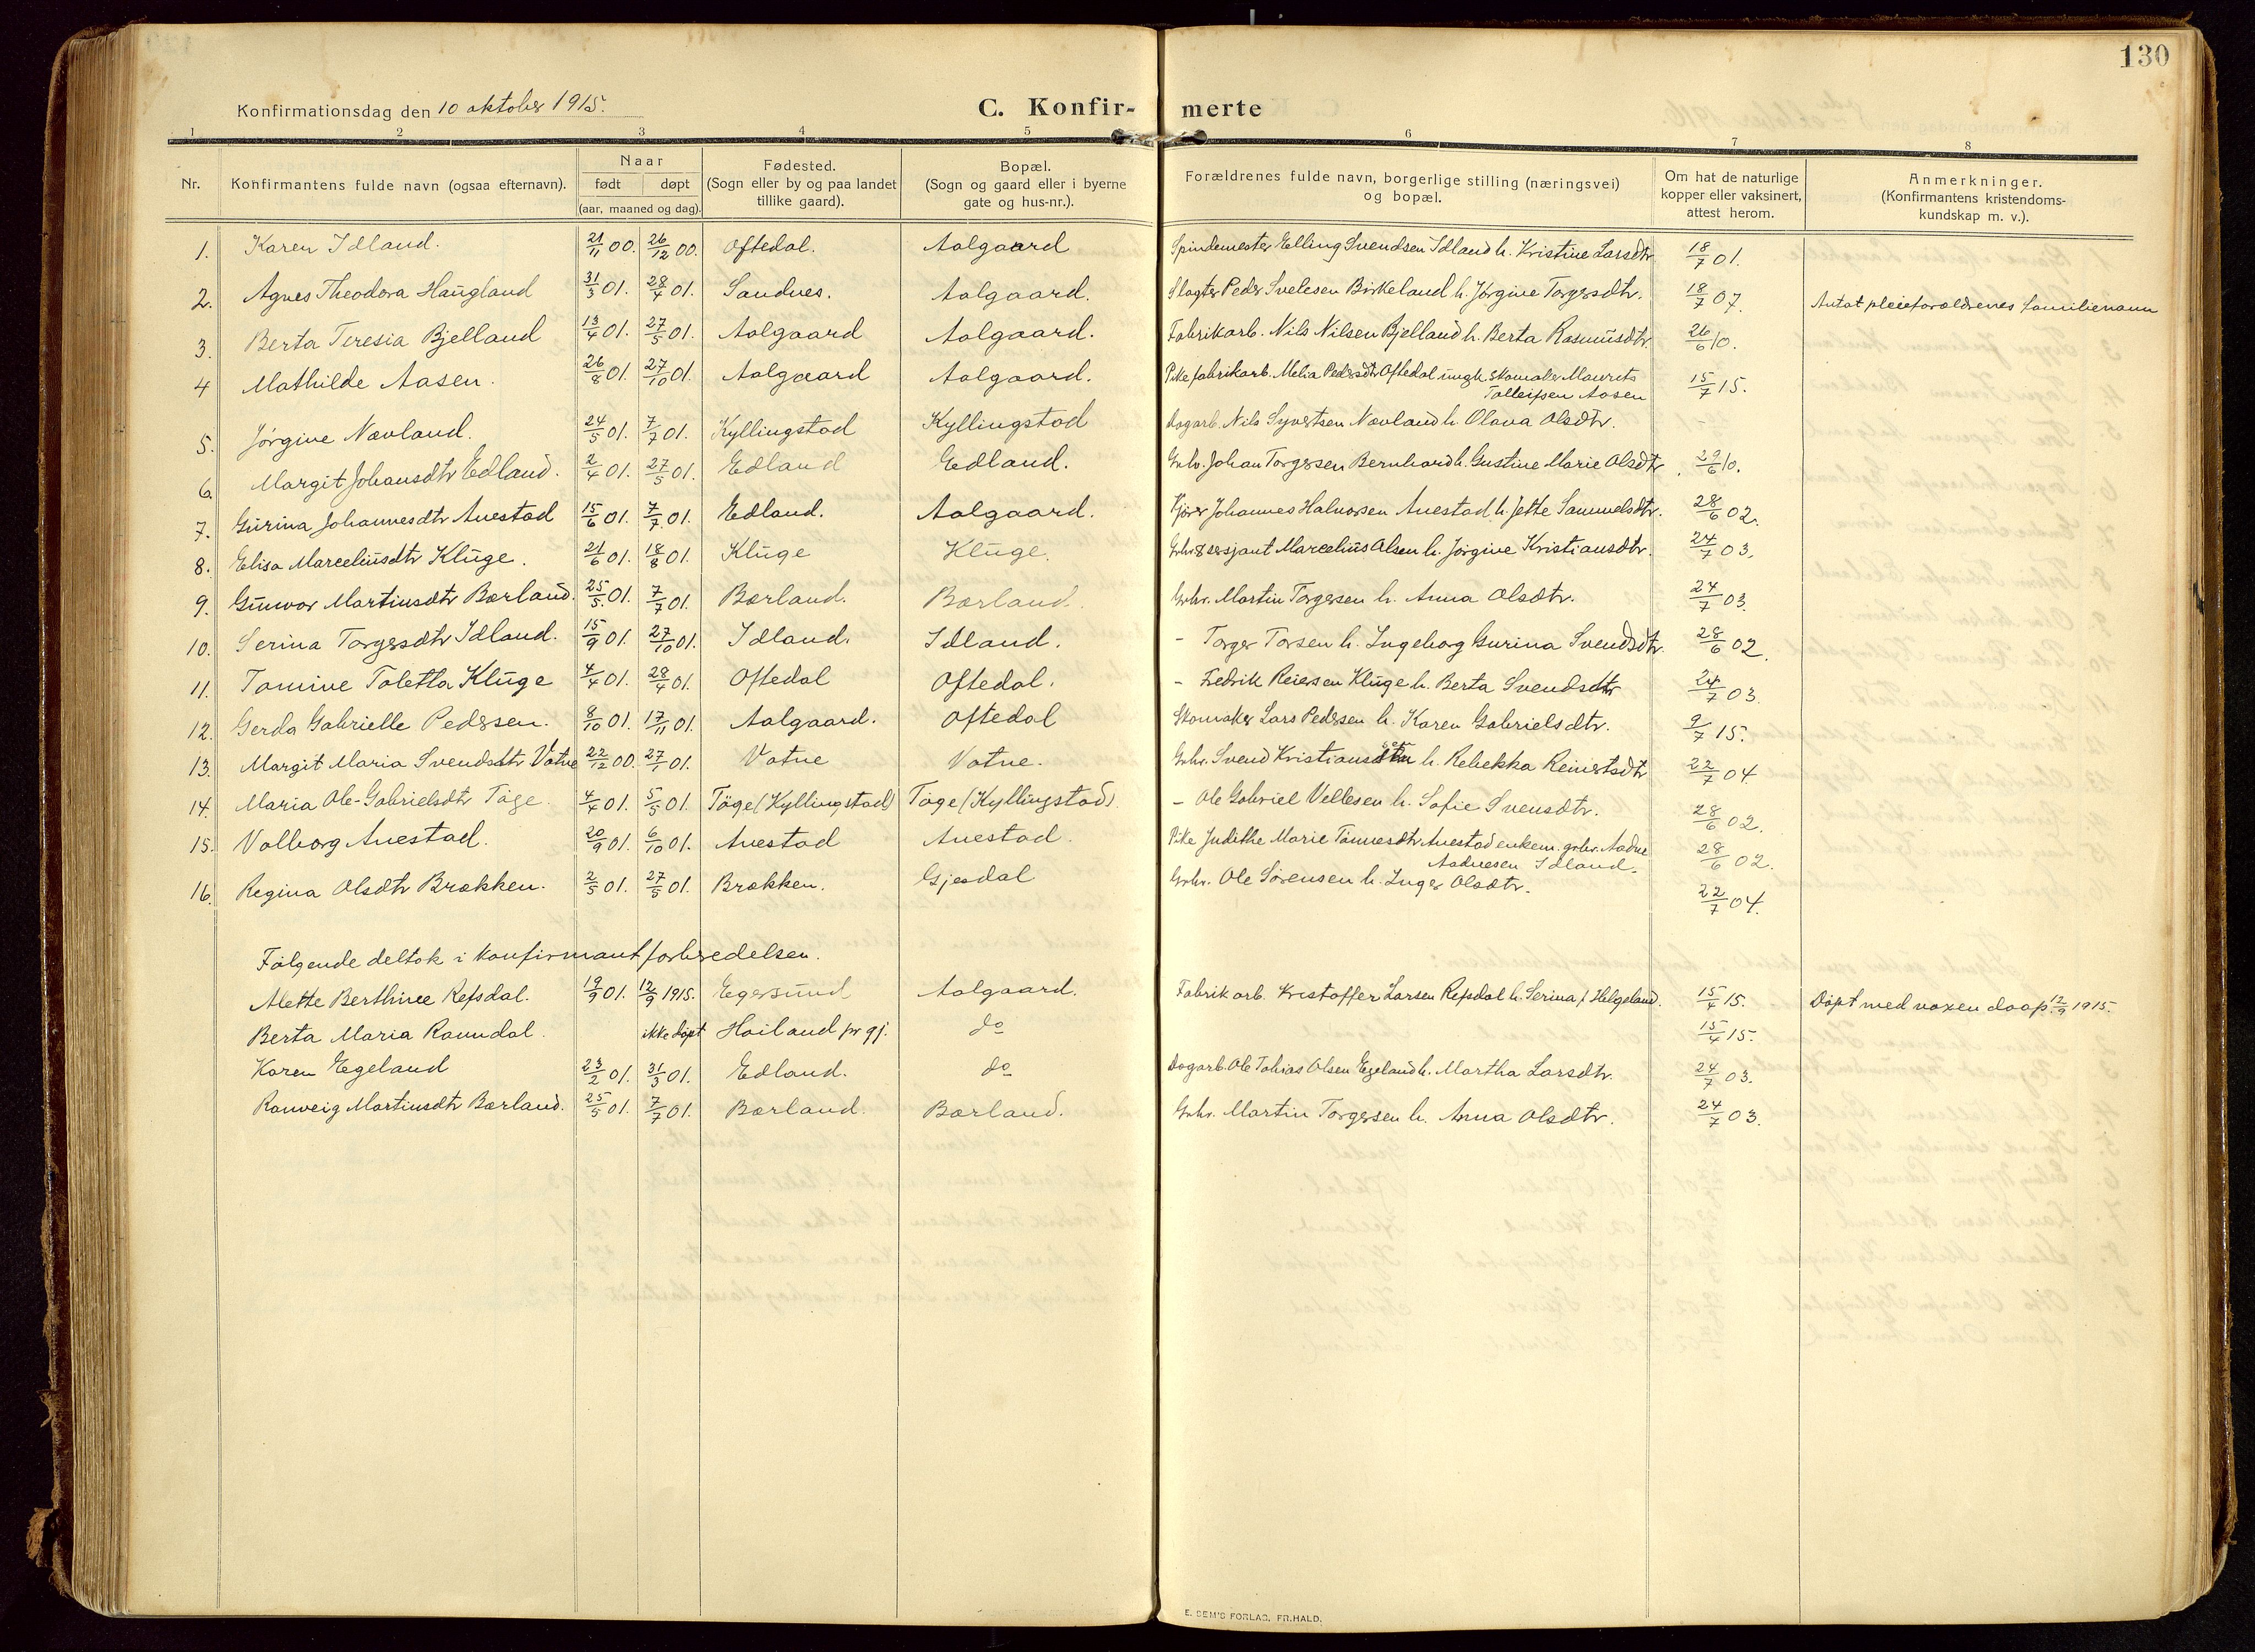 130
Konfirmationsdag den 10 oktober 1915.
C. Konfir- merte
1 2 3 4 5 6 7 8
Nr.
Konfirmantens fulde navn (ogsaa efternavn).
Naar
født døpt
(aar, maaned og dag).
Fødested.
(Sogn eller by og paa landet
tillike gaard).
Bopæl.
(Sogn og gaard eller i byerne
gate og hus-nr.).
Forældrenes fulde navn, borgerlige stilling (næringsvei)
og bopæl.
Om hat de naturlige
kopper eller vaksinert,
attest herom.
Anmerkninger.
(Konfirmantens kristendoms-
kundskap m. v.).
1. Karen Idland. 21/11 00. 26/12 00. Oftedal. Aalgaard Spindemester Elling Svendsen Idland h. Kristine Larsdtr 18/7 01.
2. Agnes Theodora Haugland 31/3 01. 28/4 01. Sandnes. Aalgaard. Slagter Peder Svelesen Birkeland h. Jørgine Torgersdtr. 18/7 07. Antat pleieforældrenes familienavn
3. Berta Teresia Bjelland 13/4 01. 27/5 01. Aalgaard Aalgaard. Fabrikarb. Nils Nilsen Bjelland h. Berta Rasmusdtr. 26/6 10.
4 Mathilde Aasen. 26/8 01. 27/10 01. Aalgaard Aalgaard. Pike fabrikarb. Melia Pedersdtr Oftedal ungk. skomaker Maurits
Tolleifsen Aasen 15/7 15.
5. Jørgine Nævland. 24/5 01. 7/7 01. Kyllingstad Kyllingstad Dagarb. Nils Syvertsen Nævland h. Olava Olsdtr. -
6. Margit Johansdtr Edland. 2/4 01. 27/5 01. Edland Edland. Grbr. Johan Torgersen Bernhard h. Gustine Marie Olsdtr. 29/6 10.
7. Gurina Johannesdtr Auestad 15/6 01. 7/7 01. Edland. Aalgaard. Kjører Johannes Halvorsen Auestad h. Jette Samuelsdtr. 28/6 02.
8. Elisa Marceliusdtr Kluge. 21/6 01. 18/8 01. Kluge Kluge. Grbr & sersjant Marcelius Olsen h. Jørgine Kristiansdtr. 24/7 03.
9. Gunvor Martinsdtr Bærland. 25/5. 01. 7/7 01. Bærland. Bærland. Grbr. Martin Torgersen h. Anna Olsdtr. 24/7 03.
10. Serina Torgersdtr Idland. 15/9 01. 27/10 01. Idland. Idland. - Torger Torsen h. Ingeborg Gurina Svendsdtr. 28/6 02.
11. Tomine Toletta Kluge 4/4 01. 28/4 01. Oftedal Oftedal. - Fedrik Reiersen Kluge h. Berta Svendsdtr 24/7 03.
12. Gerda Gabrielle Pedersen. 8/10 01. 17/11 01. Aalgaard. Oftedal Skomaker Lars Pedersen h. Karen Gabrielsdtr. 9/7 15.
13. Margit Maria Svendsdtr Vatne 22/12 00. 27/1 01. Vatne Vatne. Grbr. Svend Kristiansen h. Rebekka Reinertsdtr 22/7 04.
14. Maria Ole-Gabrielsdtr Tøge. 4/4 01. 5/5 01. Tøge (Kyllingstad) Tøge (Kyllingstad). - Ole Gabriel Vellesen h. Sofie Svensdtr. 28/6 02.
15. Valborg Auestad. 20/9 01. 6/10 01. Auestad Auestad. Pike Judithe Marie Tønnesdtr Auestad enkem. grbr. Aadne
Aadnesen Idland. 28/6 02.
16. Regina Olsdtr Brækken. 2/5 01. 27/5 01. Brækken. Gjesdal Grbr. Ole Sørensen h. Inger Olsdtr. 22/7 04.
Følgende deltok i konfirmantforberedelsen.
Alette Berthine Refsdal. 19/9 01. 12/9 1915. Egersund Aalgaard. Fabrikarb. Kristoffer Larsen Refsdal h. Serina f. Helgeland. 15/4 15. Døpt med voxen daap 12/9 1915.
Berta Maria Ramndal. ikke døpt Høiland pr gj. do 15/4 15.
Karen Egeland 23/2 01. 31/3 01. Edland. do Dagarb. Ole Tobias Olsen Egeland h. Martha Larsdtr. 24/7 03.
Ranveig Martinsdtr Bærland. 25/5 01. 7/7 01. Bærland. Bærland. Grbr. Martin Torgersen h. Anna Olsdtr. 24/7 03.
E. SEM'S FORLAG. FR.HALD.